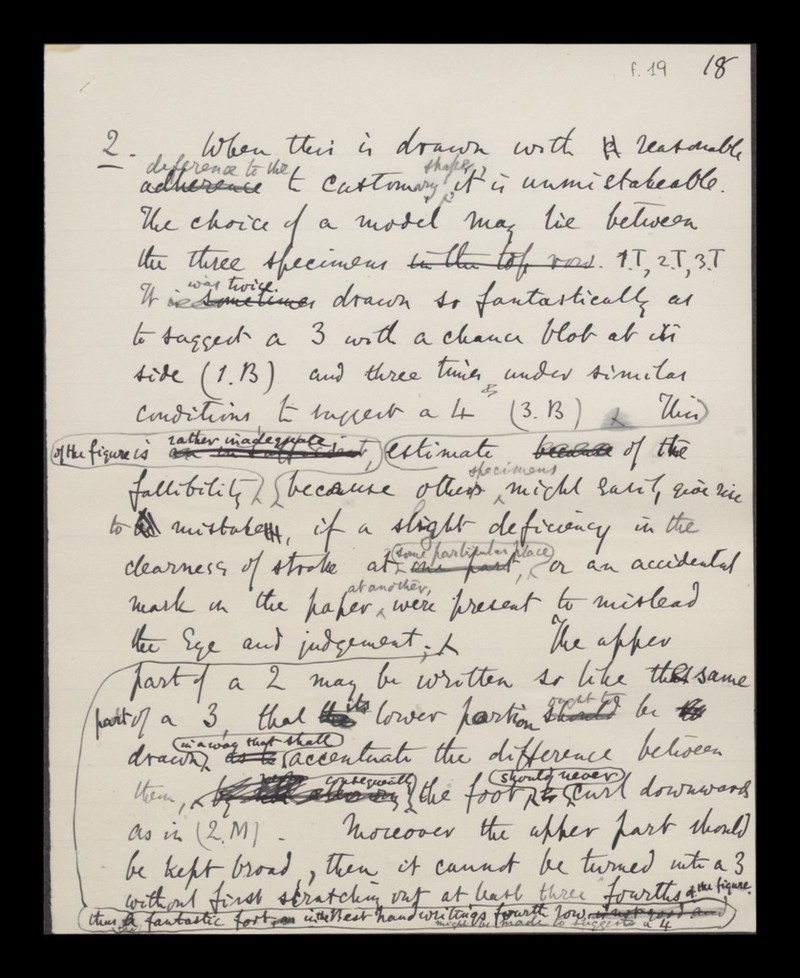 f. 19 18
2. When this is drawn with reasonable
deference to the shape,
adherence to customary it is unmistakeable.
The choice of a model may lie between
the three specimens in the top row. 1.T, 2.T, 3.T
was twice
It is sometimes drawn so fantastically as
to suggest a 3 with a chance blot at its
side (1.B) and three times under similar
conditions to suggest a 4 (3.B) This
of the figure is rather inadequate estimate because of the
specimens
fallibility because others might easily give rise
to mistake, if a slight deficiency in the
some particular place
clearness of stroke at one part, or an accidental
at another,
mark in the paper were present to mislead
the Eye and judgement; The upper
part of a 2 may be written so like the same
its ought to
part of a 3 that the lower portion should be
in a way that shall
drawn as to accentuate the difference between
consequently should never
them, the foot to curl downwards
as in (2.M). Moreover the upper part should
be kept broad, then it cannot be turned into a 3
without first scratching out at least three fourths of the figure.
thus a fantastic foot in the Best handwritings fourth row, is not good and
might be made to suggest a 4